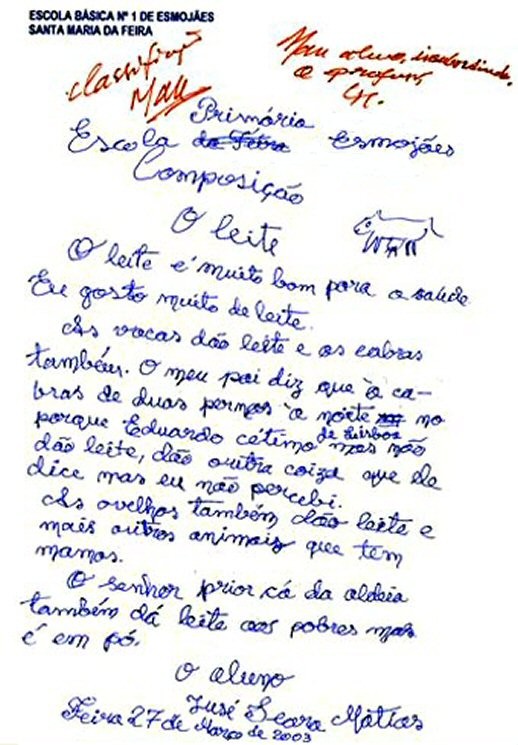 ESCOLA BÁSICA Nº 1 DE ESMOJÃES
SANTA MARIA DA FEIRA
Mau aluno,
classificaç
Mau
a profess,
Primária
Escola da Feira Esmojães
Composição
O leite
O leite é muito bom para a saúde
Eu gosto muito de leite.
As vacas dão leite e as cabras
também. O meu pai diz que à ca-
bras de duas pernas à noite no
porque Eduardo cétimo de Lisboa mas não
dão leite, dão outra coiza que ele
dice mas eu não percebi.
As ovelhas também dão leite e
mais outros animais que tem
mamas.
O senhor prior cá da aldeia
também dá leite aos pobres mas
é em pó.
O aluno
Jusé Seara Matias
Feira 27 de Março de 2003